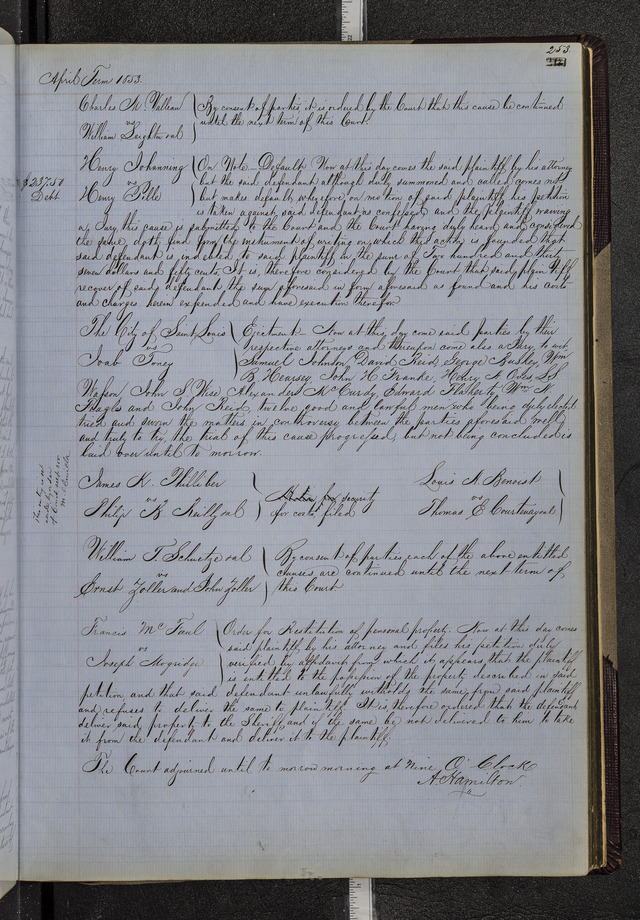 253.
April Term 1853.
Charles M. Valleau
vs
William Leighton al
By consent of parties, it is ordered by the Court that this cause be continued
until the next term of this Court.
$237.50
Debt
Henry Johanning
vs
Henry Pille
On Note. Default. Now at this day comes the said plaintiff by his attorney
but the said defendant although duly summoned and called comes not
but makes default, wherefore, on motion of said plaintiff his petition
is taken against said defendant as confessed and the plaintiff waiving
a Jury this cause is submitted to the Court and the Court having duly heard and considered
the same, doth find from the instrument of writing on which this action is founded that
said defendant is indebted to said plaintiff in the sum of Two hundred and thirty
seven dollars and fifty cents. It is, therefore considered by the Court that said plaintiff
recover of said defendant the sum aforesaid in form aforesaid as found and his costs
and charges herein expended and have execution therefor.
The City of Saint Louis
vs
Joab Toney
Ejectment. Now at this day come said parties by their
respective attorneys and thereupon come also a Jury to wit,
Samuel Johnson, David Reid, George Wm
B. Hearsey, John H. Franke, Henry A
Watson, John S. Wise, Alexander McCurdy, Edward Flaherty, Wm N.
and John Reid, twelve good and lawful men who being duly elected
tried and sworn the matters in controversy between the parties aforesaid well
and truly to try, the trial of this cause progressed, but not being concluded is
laid over until to morrow.
James K. Philliber
vs
Philip B al
Motion for security
for costs filed
Louis A. Benoist
vs
Thomas E Courtenay et al
William T. Schuetze et al
vs
Ernst Zoller and John Zoller
By consent of parties, each of the above entitled
causes are continued until the next term of
this Court
Francis McFaul
vs
Joseph Mogridge
Order for Restitution of personal property. Now at this day comes
said plaintiff by his attorney and files his petition duly
verified by affidavit from which it appears, that the plaintiff
is entitled to the possession of the property described in said
petition and that said defendant unlawfully witholds the same from said plaintiff
and refuses to deliver the same to plaintiff. It is, therefore ordered that the defendant
deliver said property to the Sheriff and if the same be not delivered to him to take
it from the defendant and deliver it to the plaintiff.
The Court adjourned until to morrow morning at Nine O' Clock
A. Hamilton